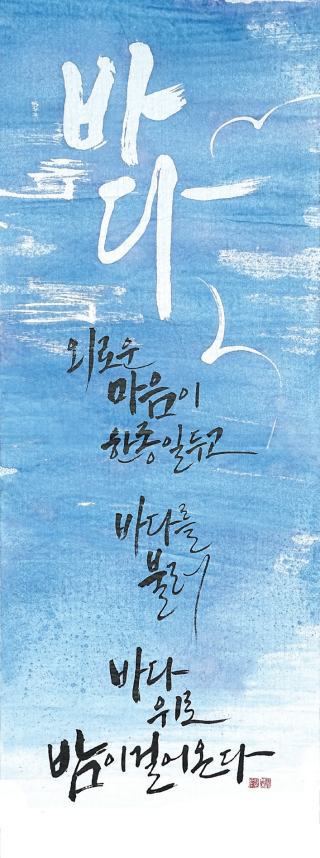 바다
외로운
마음이
한종일두고
바다를
불러
바다
위로
밤이걸어온다